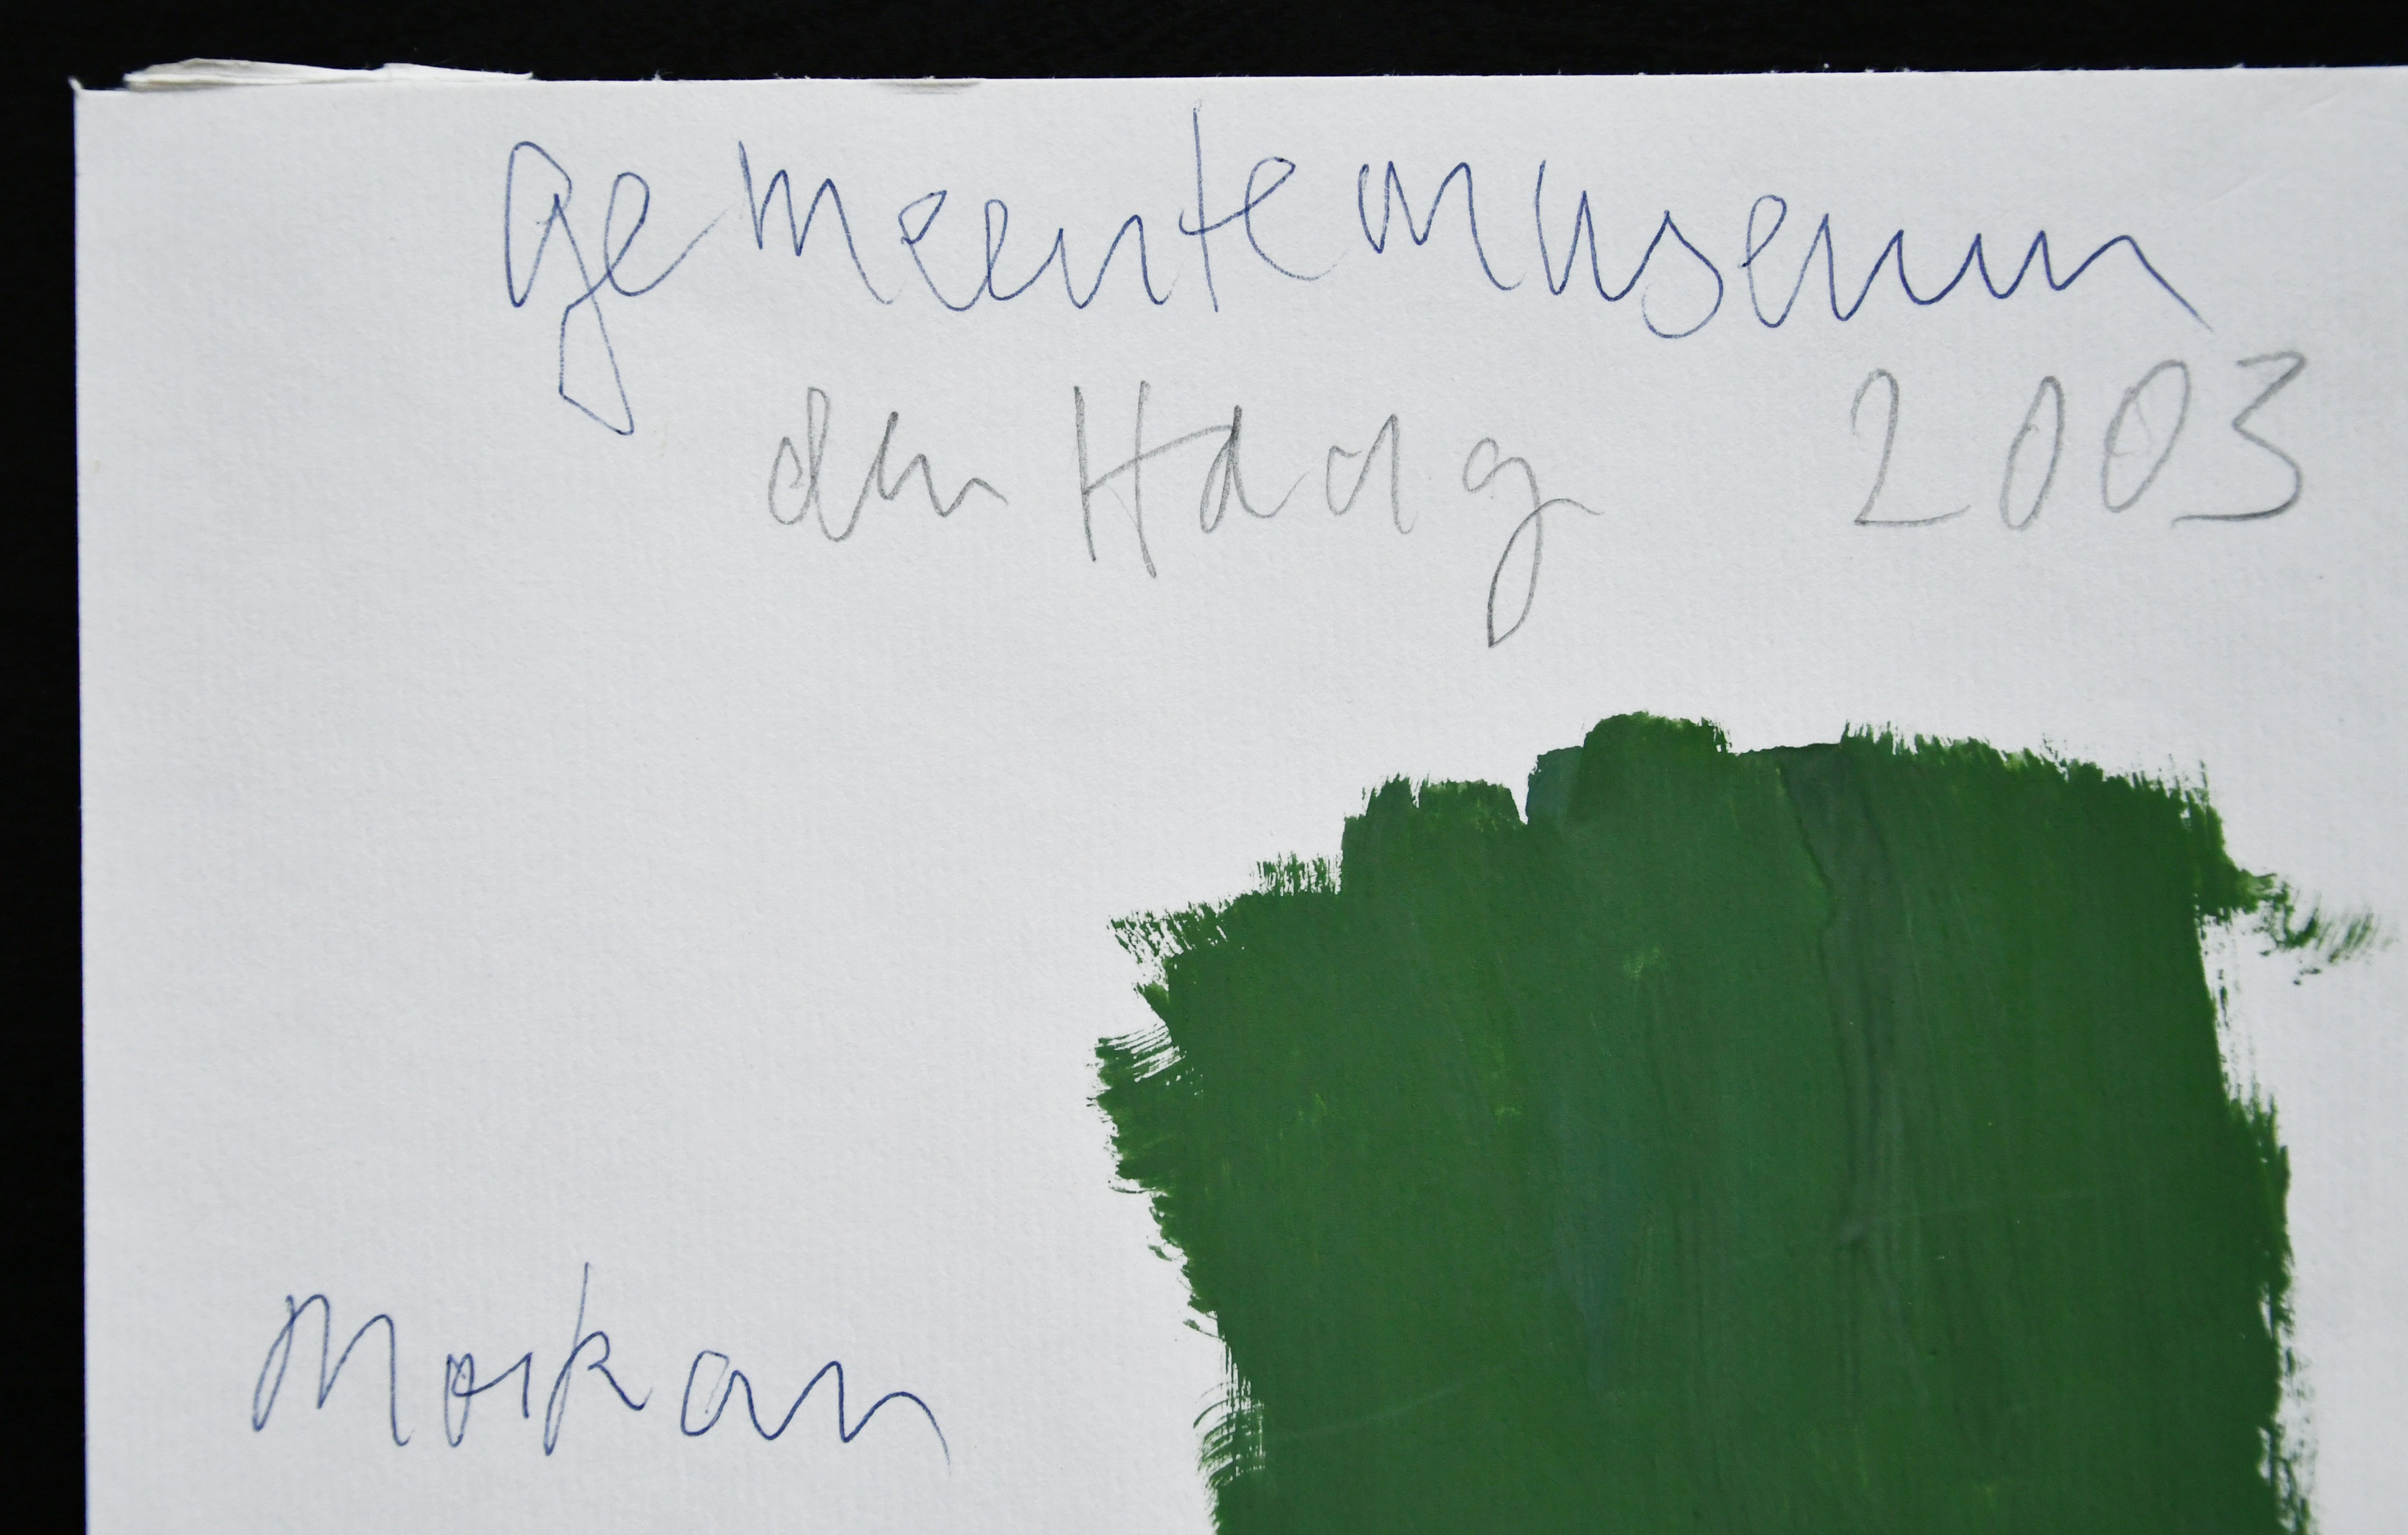 gemeentemuseum
den Haag 2003
Morkan